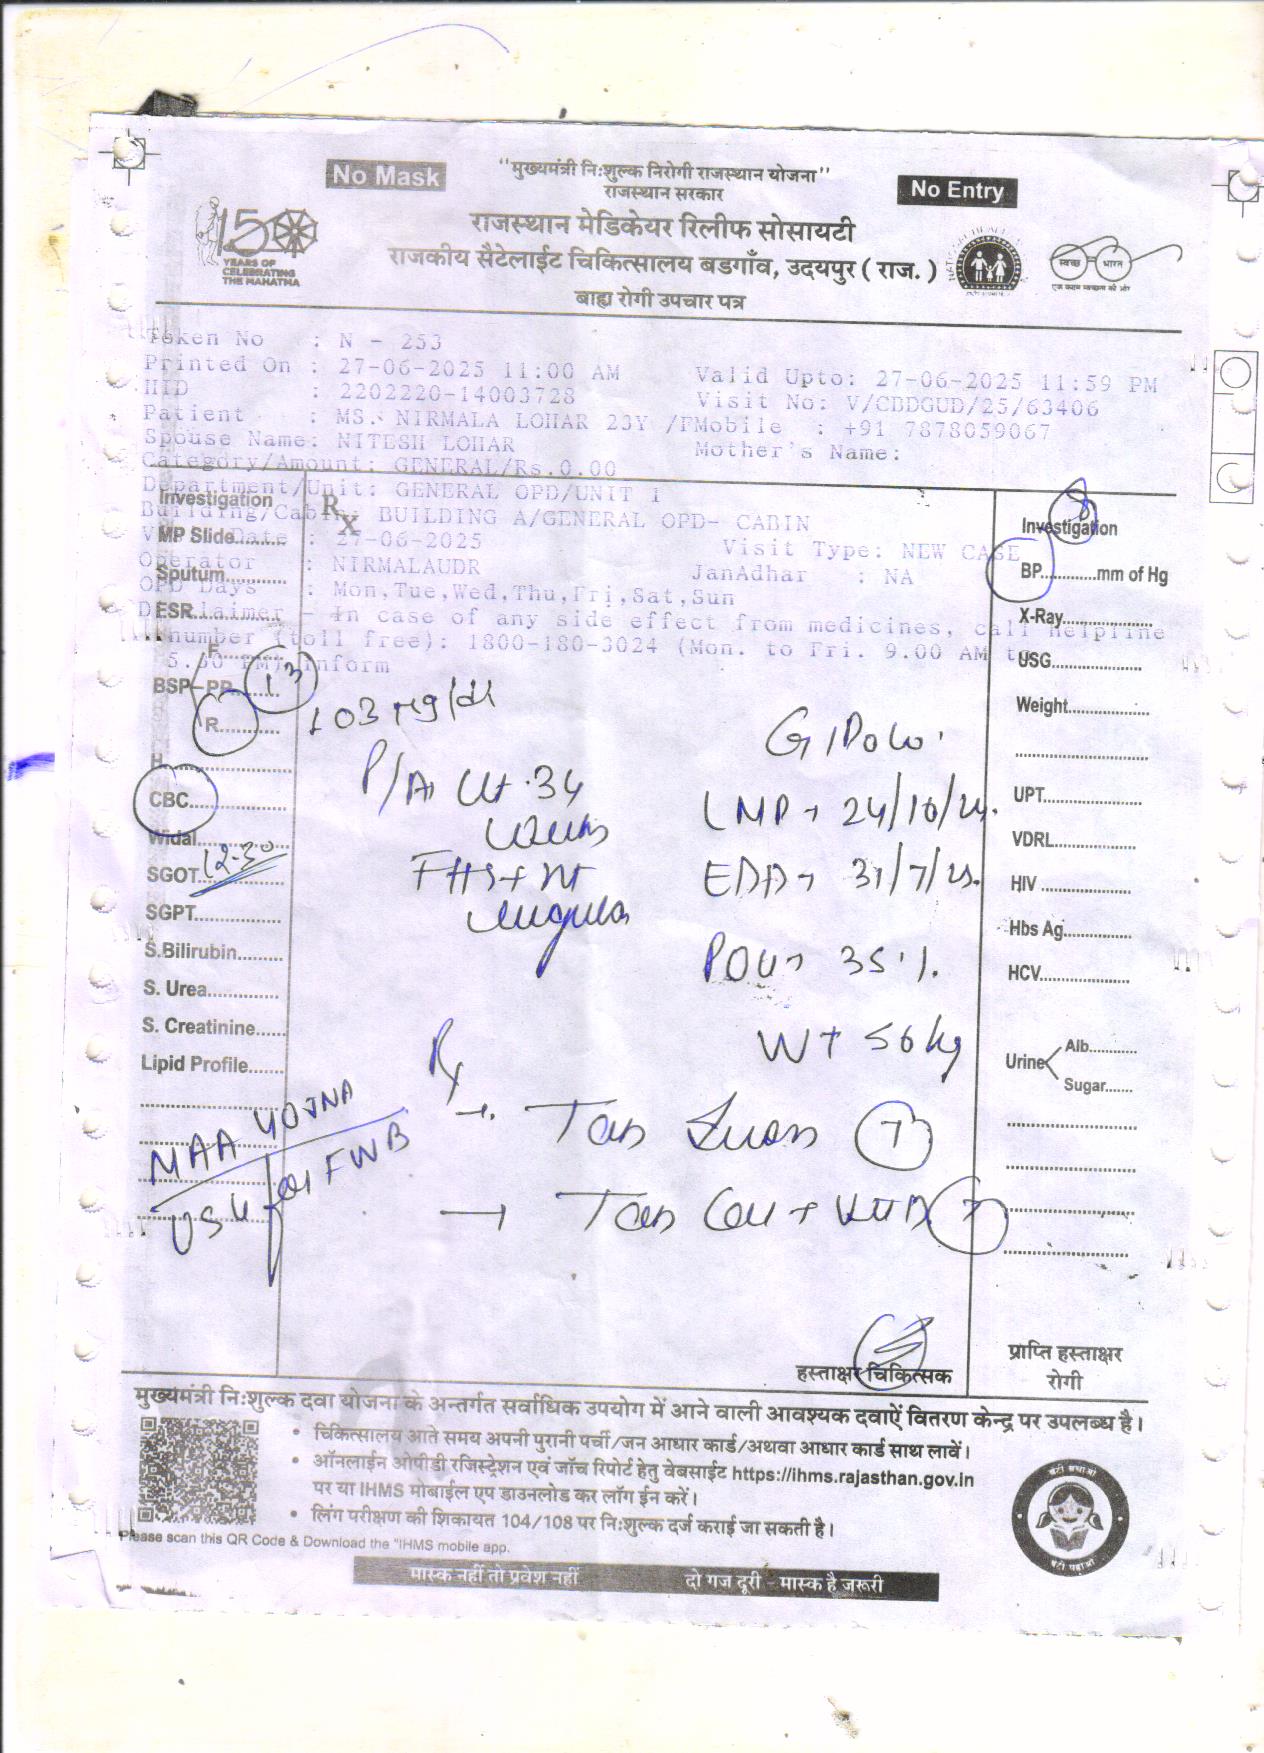 No Mask
"मुख्यमंत्री निःशुल्क निरोगी राजस्थान योजना"
राजस्थान सरकार
No Entry
राजस्थान मेडिकेयर रिलीफ सोसायटी
राजकीय सैटेलाईट चिकित्सालय बडगाँव, उदयपुर ( राज. )
बाह्य रोगी उपचार पत्र
150
YEARS OF
CELEBRATING
THE MAHATMA
स्वच्छ भारत
एक कदम स्वच्छता की ओर
Token No : N - 253
Printed On : 27-06-2025 11:00 AM Valid Upto: 27-06-2025 11:59 PM
HID : 2202220-14003728 Visit No: V/CBDGUD/25/63406
Patient : MS. NIRMALA LOHAR 23Y /F Mobile : +91 7878059067
Spouse Name: NITESH LOHAR Mother's Name:
Category/Amount: GENERAL/Rs.0.00
Department/Unit: GENERAL OPD/UNIT 1
Building/Cabin: BUILDING A/GENERAL OPD- CABIN
Date : 27-06-2025 Visit Type: NEW CASE
Operator : NIRMALAUDR JanAdhar : NA
OPD Days : Mon,Tue,Wed,Thu,Fri,Sat,Sun
Disclaimer - In case of any side effect from medicines, call helpline
number (toll free): 1800-180-3024 (Mon. to Fri. 9.00 AM to
5.30 PM) inform
Investigation
Rx
MP Slide.........
Sputum............
ESR
F...........
BSP PP........ 13
R............ 103 mg/dl
H
CBC..............
Widal............
SGOT 12-30
SGPT..............
S.Bilirubin.........
S. Urea..............
S. Creatinine......
Lipid Profile.......
P/A Ut 34
weeks
FHS+ nt
regular
G1P0L0
LMP → 24/10/24.
EDD → 31/7/25.
POU → 35 %.
WT 56 kg
Rx
→ Tab (7)
→ Tab Cal + Vit D (7)
MAA YOJNA
USG for FWB
Investigation
BP............mm of Hg
X-Ray..................
USG..................
Weight................
UPT...................
VDRL.................
HIV ..................
Hbs Ag..............
HCV..................
Urine Alb...........
Sugar.......
हस्ताक्षर चिकित्सक
प्राप्ति हस्ताक्षर
रोगी
मुख्यमंत्री निःशुल्क दवा योजना के अन्तर्गत सर्वाधिक उपयोग में आने वाली आवश्यक दवाऐं वितरण केन्द्र पर उपलब्ध है।
• चिकित्सालय आते समय अपनी पुरानी पर्ची/जन आधार कार्ड/अथवा आधार कार्ड साथ लावें।
• ऑनलाईन ओपीडी रजिस्ट्रेशन एवं जॉच रिपोर्ट हेतु वेबसाईट https://ihms.rajasthan.gov.in
पर या IHMS मोबाईल एप डाउनलोड कर लॉग ईन करें।
• लिंग परीक्षण की शिकायत 104/108 पर निःशुल्क दर्ज कराई जा सकती है।
Please scan this QR Code & Download the "IHMS mobile app.
बेटी बचाओ
बेटी पढ़ाओ
मास्क नहीं तो प्रवेश नहीं दो गज दूरी - मास्क है जरूरी